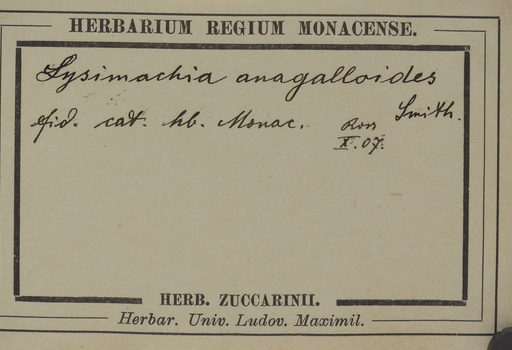 HERBARIUM REGIUM MONACENSE.
Lysimachia anagalloides
Smith.
fid. cat. hb. Monac. Ross
X.07.
HERB. ZUCCARINII.
Herbar. Univ. Ludov. Maximil.